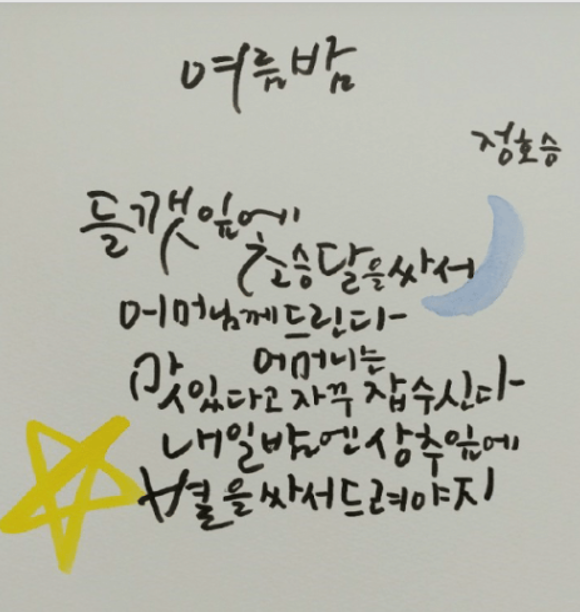 여름밤
정호승
들깻잎에
초승달을싸서
어머님께드린다
어머니는
맛있다고 자꾸 잡수신다
내일밤엔상추잎에
별을싸서드려야지